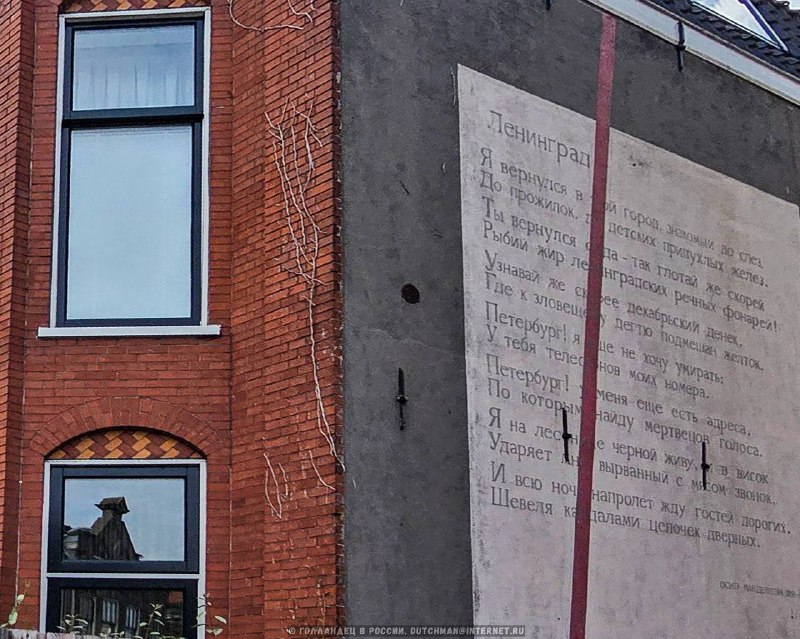 Ленинград
Я вернулся в мой город, знакомый до слез,
До прожилок, до детских припухлых желез.
Ты вернулся сюда - так глотай же скорей
Рыбий жир ленинградских речных фонарей!
Узнавай же скорее декабрьский денек,
Где к зловещему дегтю подмешан желток.
Петербург! я еще не хочу умирать:
У тебя телефонов моих номера.
Петербург! У меня еще есть адреса,
По которым найду мертвецов голоса.
Я на лестнице черной живу, и в висок
Ударяет мне вырванный с мясом звонок.
И всю ночь напролет жду гостей дорогих,
Шевеля кандалами цепочек дверных.
ОСИП МАНДЕЛЬШТАМ
© ГОЛЛАНДЕЦ В РОССИИ, DUTCHMAN@INTERNET.RU